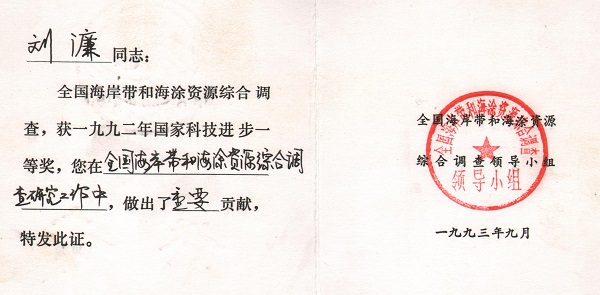 刘濂同志：
全国海岸带和海涂资源综合调
查，获一九九二年国家科技进步一
等奖，您在全国海岸带和海涂资源综合调
查研究工作中，做出了重要贡献，
特发此证。
全国海岸带和海涂资源
综合调查领导小组
一九九三年九月
全国海岸带和海涂资源综合调查
领导小组